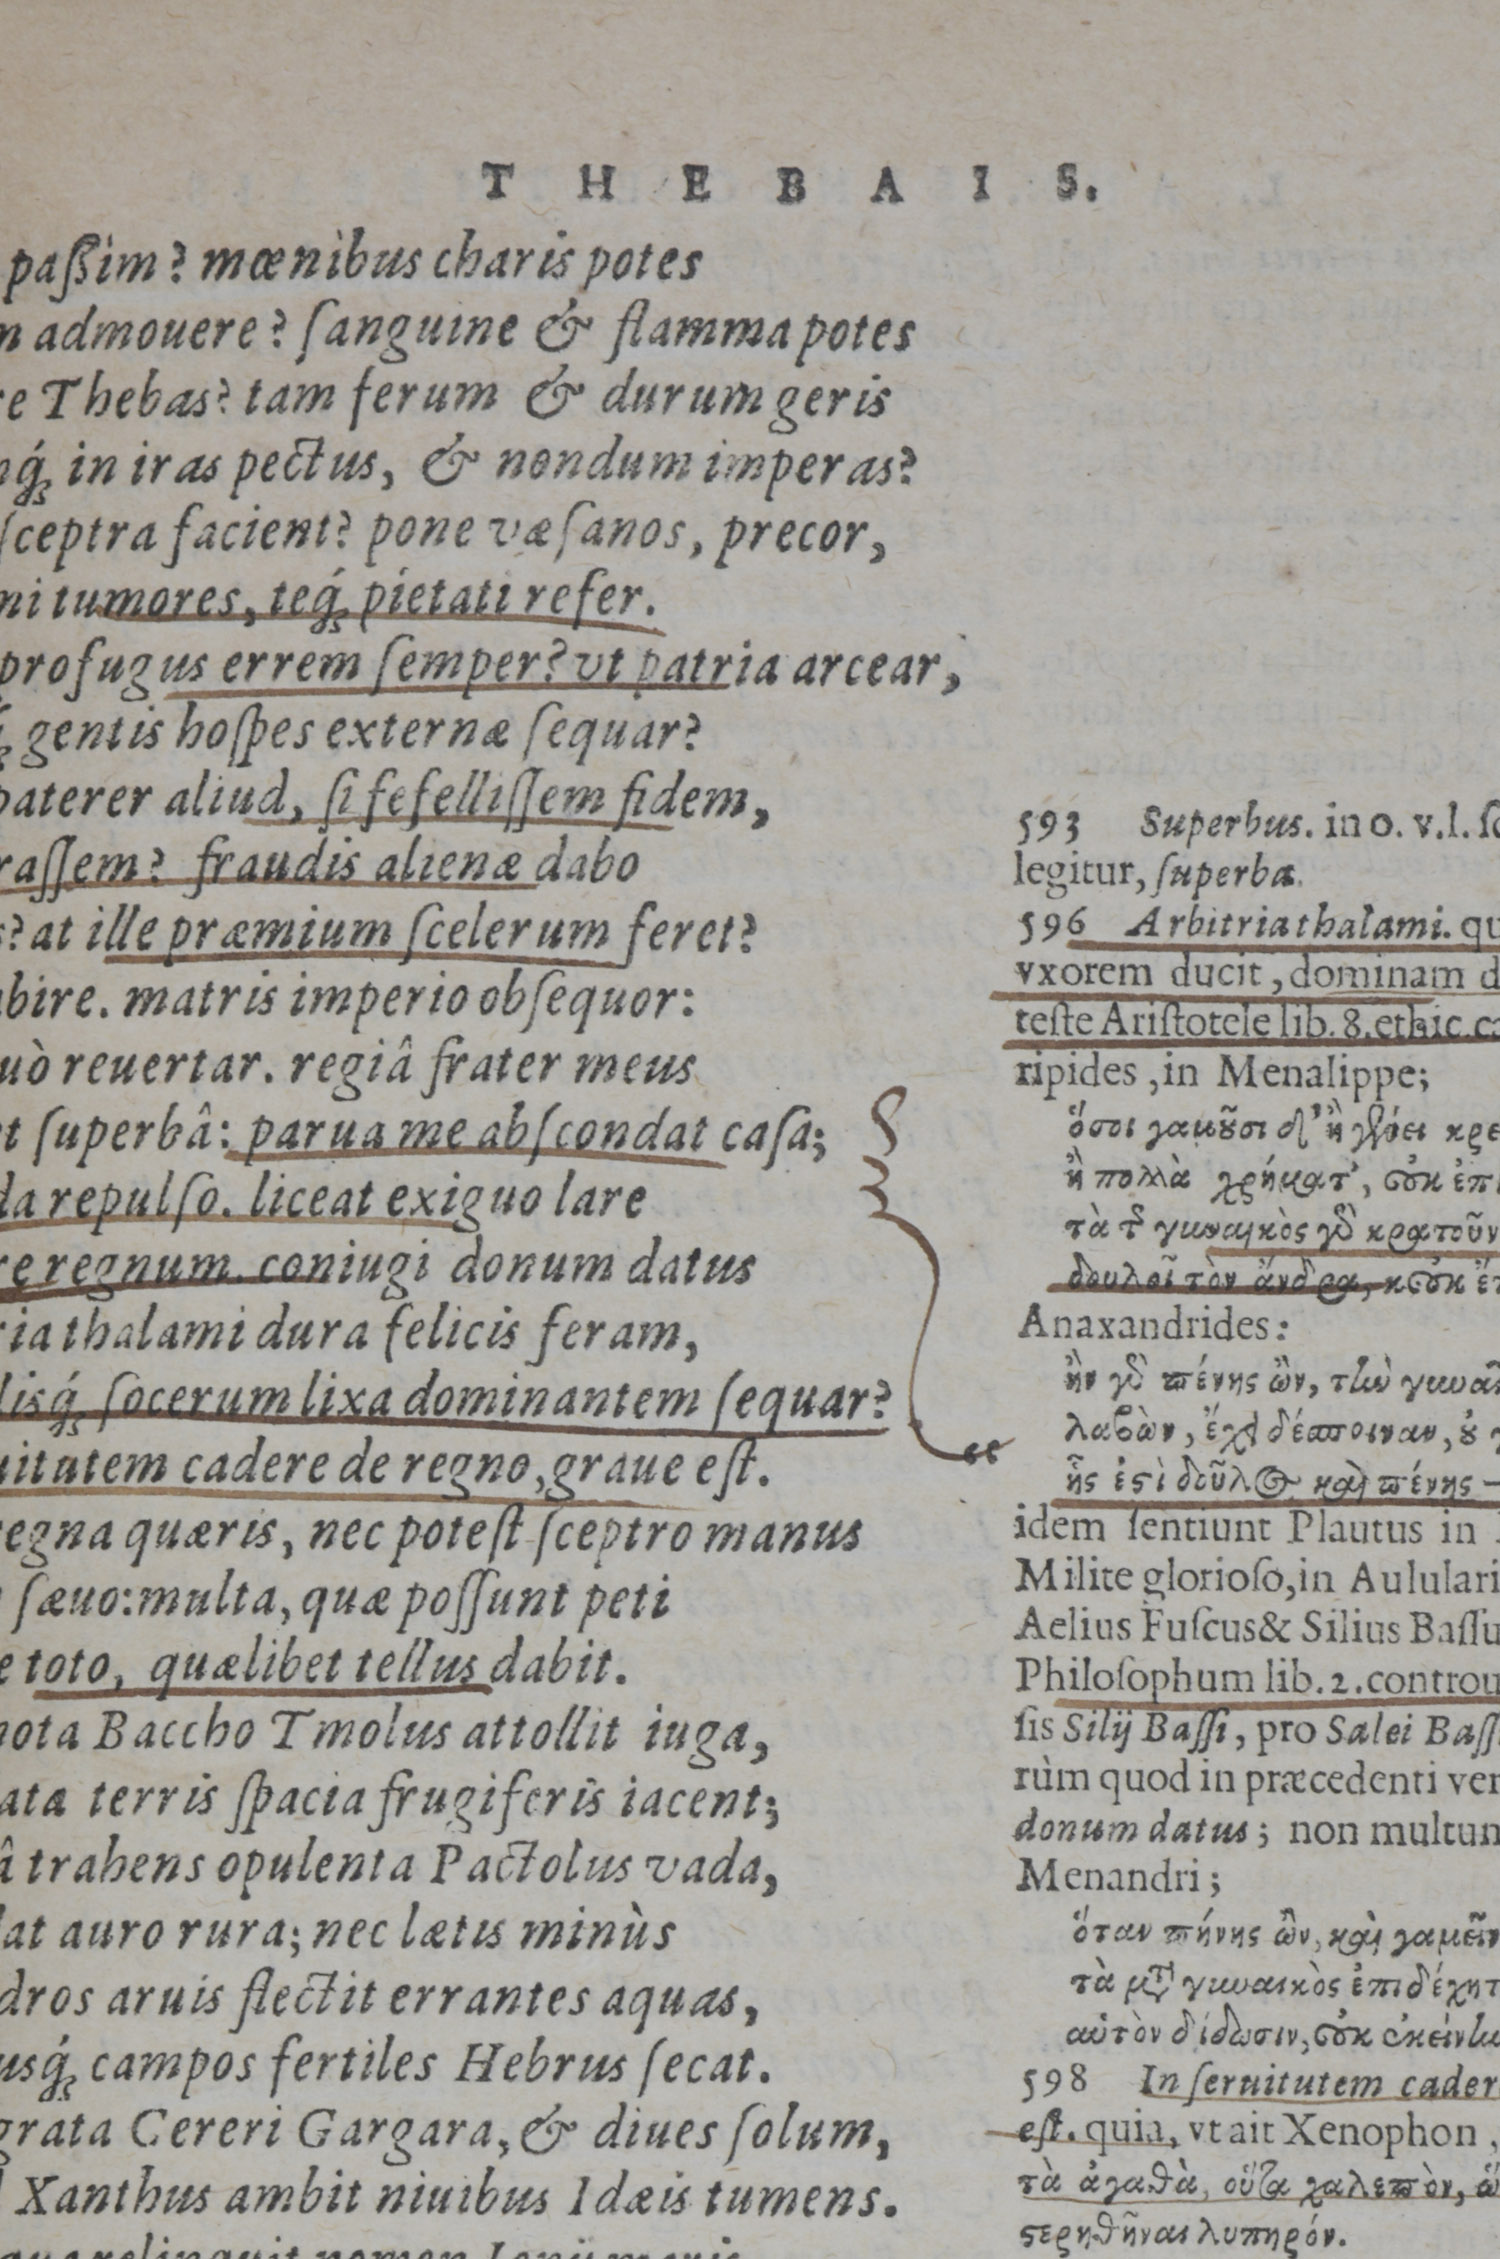 THEBAIS.
paſsim? mœnibus charis potes
admouere? ſanguine & flamma potes
Thebas? tam ferum & durum geris
in iras pectus, & nondum imperas?
ſceptra facient? pone væſanos, precor,
tumores, teq́; pietati refer.
profugus errem ſemper? vt patria arcear,
gentis hoſpes externæ ſequar?
paterer aliud, ſi fefelliſſem fidem,
raſſem? fraudis alienæ dabo
s? at ille præmium ſcelerum feret?
abire. matris imperio obſequor:
uò reuertar. regiâ frater meus
t ſuperbâ: parua me abſcondat caſa;
da repulſo. liceat exiguo lare
re regnum. coniugi donum datus
ria thalami dura felicis feram,
lisq́; ſocerum lixa dominantem ſequar?
uitutem cadere de regno, graue eſt.
regna quæris, nec poteſt ſceptro manus
ſæuo: multa, quæ poſſunt peti
e toto, quælibet tellus dabit.
nota Baccho Tmolus attollit iuga,
ata terris ſpacia frugiferis iacent;
â trahens opulenta Pactolus vada,
at auro rura; nec lætis minùs
dros aruis flectit errantes aquas,
usq́; campos fertiles Hebrus ſecat.
grata Cereri Gargara, & diues ſolum,
Xanthus ambit niuibus Idæis tumens.
593 Superbus. in o. v. l. ſc
legitur, ſuperba.
596 Arbitria thalami. qu
vxorem ducit, dominam d
teſte Ariſtotele lib. 8. ethic. ca
ripides, in Menalippe;
ὅσοι γαμοῦσι δ' ἢ γένει κρε
ἢ πολλὰ χρήματ', οὐκ ἐπι
τὰ τῆς γυναικὸς γὸ κρατοῦν
δουλοῖ τὸν ἄνδρα, κοὐκ ἔτ
Anaxandrides:
ἢν γὸ πένης ὢν, τὴν γυναῖ
λαβὼν, ἔχει δέσποιναν, οὐ γ
ἧς ἐστὶ δοῦλος καὶ πένης —
idem ſentiunt Plautus in
Milite glorioſo, in Aulularia
Aelius Fuſcus & Silius Baſſu
Philoſophum lib. 2. controu
ſis Silij Baſſi, pro Salei Baſſi
rùm quod in præcedenti ver
donum datus; non multum
Menandri;
ὅταν πήνης ὢν, καὶ γαμεῖν
τὰ μετὰ γυναικὸς ἐπιδέχητ
αὑτὸν δίδωσιν, οὐκ ἐκείνην
598 In ſeruitutem cader
eſt. quia, vt ait Xenophon,
τὰ ἀγαθὰ, οὕτω χαλεπὸν, ὥ
στερηθῆναι λυπηρόν.